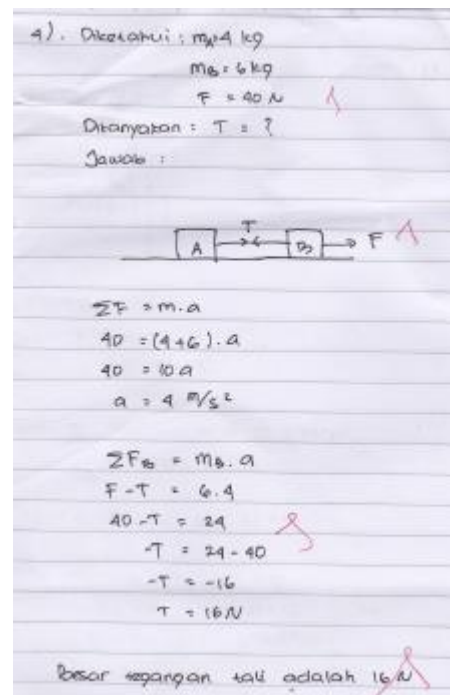 4). Diketahui : mA=4 kg
mB = 6 kg
F = 40 N
Ditanyakan : T = ?
Jawab :
T
A B F
ΣF = m.a
40 = (4+6).a
40 = 10 a
a = 4 m/s²
ΣFB = mB.a
F-T = 6.4
40-T = 24
-T = 24-40
-T = -16
T = 16 N
Besar tegangan tali adalah 16 N